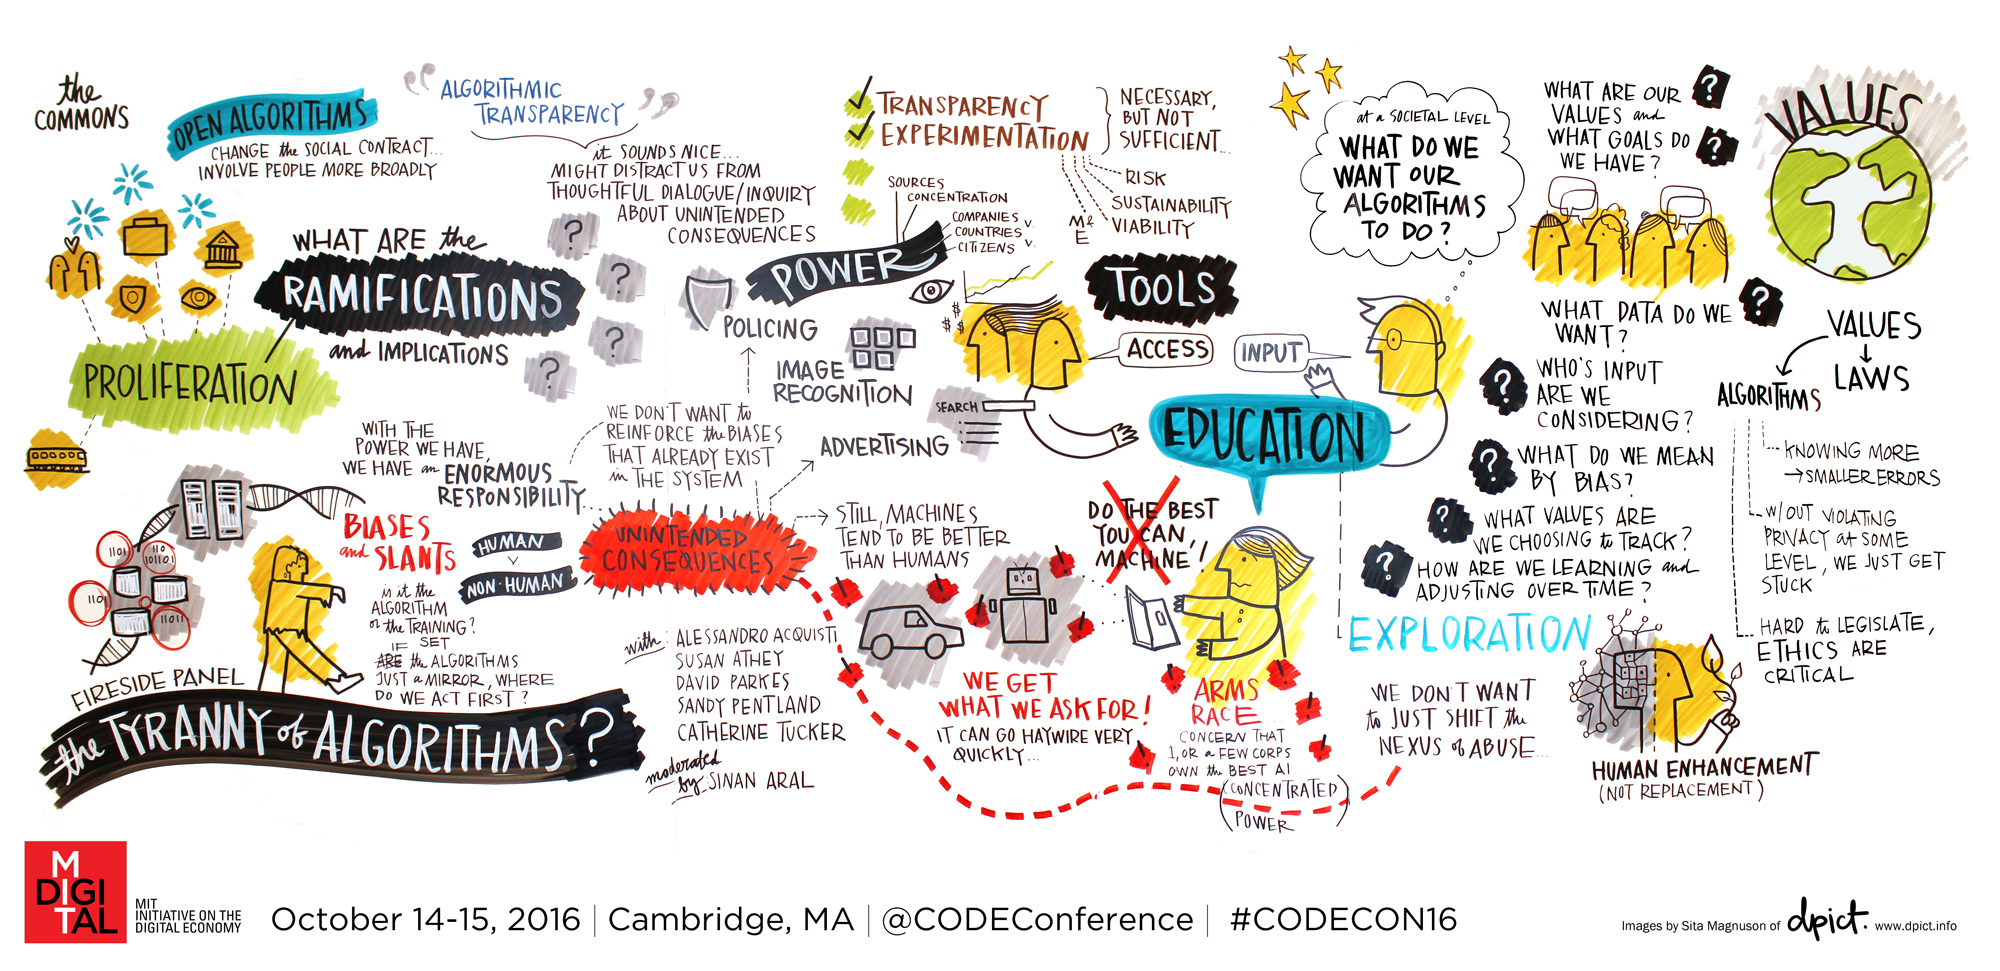 the
COMMONS
OPEN ALGORITHMS
CHANGE the SOCIAL CONTRACT...
INVOLVE PEOPLE MORE BROADLY
"ALGORITHMIC
TRANSPARENCY"
it SOUNDS NICE...
MIGHT DISTRACT US FROM
THOUGHTFUL DIALOGUE/INQUIRY
ABOUT UNINTENDED
CONSEQUENCES
?
?
?
?
WHAT ARE the
RAMIFICATIONS
and IMPLICATIONS
PROLIFERATION
WITH THE
POWER WE HAVE,
WE HAVE an ENORMOUS
RESPONSIBILITY
WE DON'T WANT to
REINFORCE the BIASES
THAT ALREADY EXIST
in THE SYSTEM
BIASES
and SLANTS
is it the
ALGORITHM
or the TRAINING?
IF SET
ARE the ALGORITHMS
JUST a MIRROR, WHERE
DO WE ACT FIRST?
HUMAN
V.
NON-HUMAN
1101
1101
101101
1101
11011
FIRESIDE PANEL
the TYRANNY of ALGORITHMS?
with: ALESSANDRO ACQUISTI
SUSAN ATHEY
DAVID PARKES
SANDY PENTLAND
CATHERINE TUCKER
moderated
by: SINAN ARAL
UNINTENDED
CONSEQUENCES
POLICING
IMAGE
RECOGNITION
ADVERTISING
SEARCH
STILL, MACHINES
TEND TO BE BETTER
THAN HUMANS
TRANSPARENCY
EXPERIMENTATION
NECESSARY,
BUT NOT
SUFFICIENT...
RISK
SUSTAINABILITY
VIABILITY
M&
E
SOURCES
CONCENTRATION
COMPANIES V.
COUNTRIES V.
CITIZENS V.
POWER
$
$
$
TOOLS
ACCESS
INPUT
EDUCATION
DO THE BEST
YOU CAN,
MACHINE!
WE GET
WHAT WE ASK FOR!
IT CAN GO HAYWIRE VERY
QUICKLY...
ARMS
RACE...
CONCERN THAT
1, OR a FEW CORPS
OWN the BEST AI
(CONCENTRATED
POWER)
at a SOCIETAL LEVEL
WHAT DO WE
WANT OUR
ALGORITHMS
TO DO?
WHAT ARE OUR
VALUES and
WHAT GOALS DO
WE HAVE?
?
?
WHAT DATA DO WE
WANT?
?
?
WHO'S INPUT
ARE WE
CONSIDERING?
?
WHAT DO WE MEAN
BY BIAS?
?
WHAT VALUES ARE
WE CHOOSING to TRACK?
?
HOW ARE WE LEARNING and
ADJUSTING OVER TIME?
EXPLORATION
WE DON'T WANT
to JUST SHIFT the
NEXUS of ABUSE...
HUMAN ENHANCEMENT
(NOT REPLACEMENT)
VALUES
VALUES
LAWS
ALGORITHMS
KNOWING MORE
→ SMALLER ERRORS
W/OUT VIOLATING
PRIVACY at SOME
LEVEL, WE JUST GET
STUCK
HARD to LEGISLATE,
ETHICS ARE
CRITICAL
M
DIGI
TAL
MIT
INITIATIVE ON THE
DIGITAL ECONOMY
October 14-15, 2016 | Cambridge, MA | @CODEConference | #CODECON16
Images by Sita Magnuson of dpict. www.dpict.info